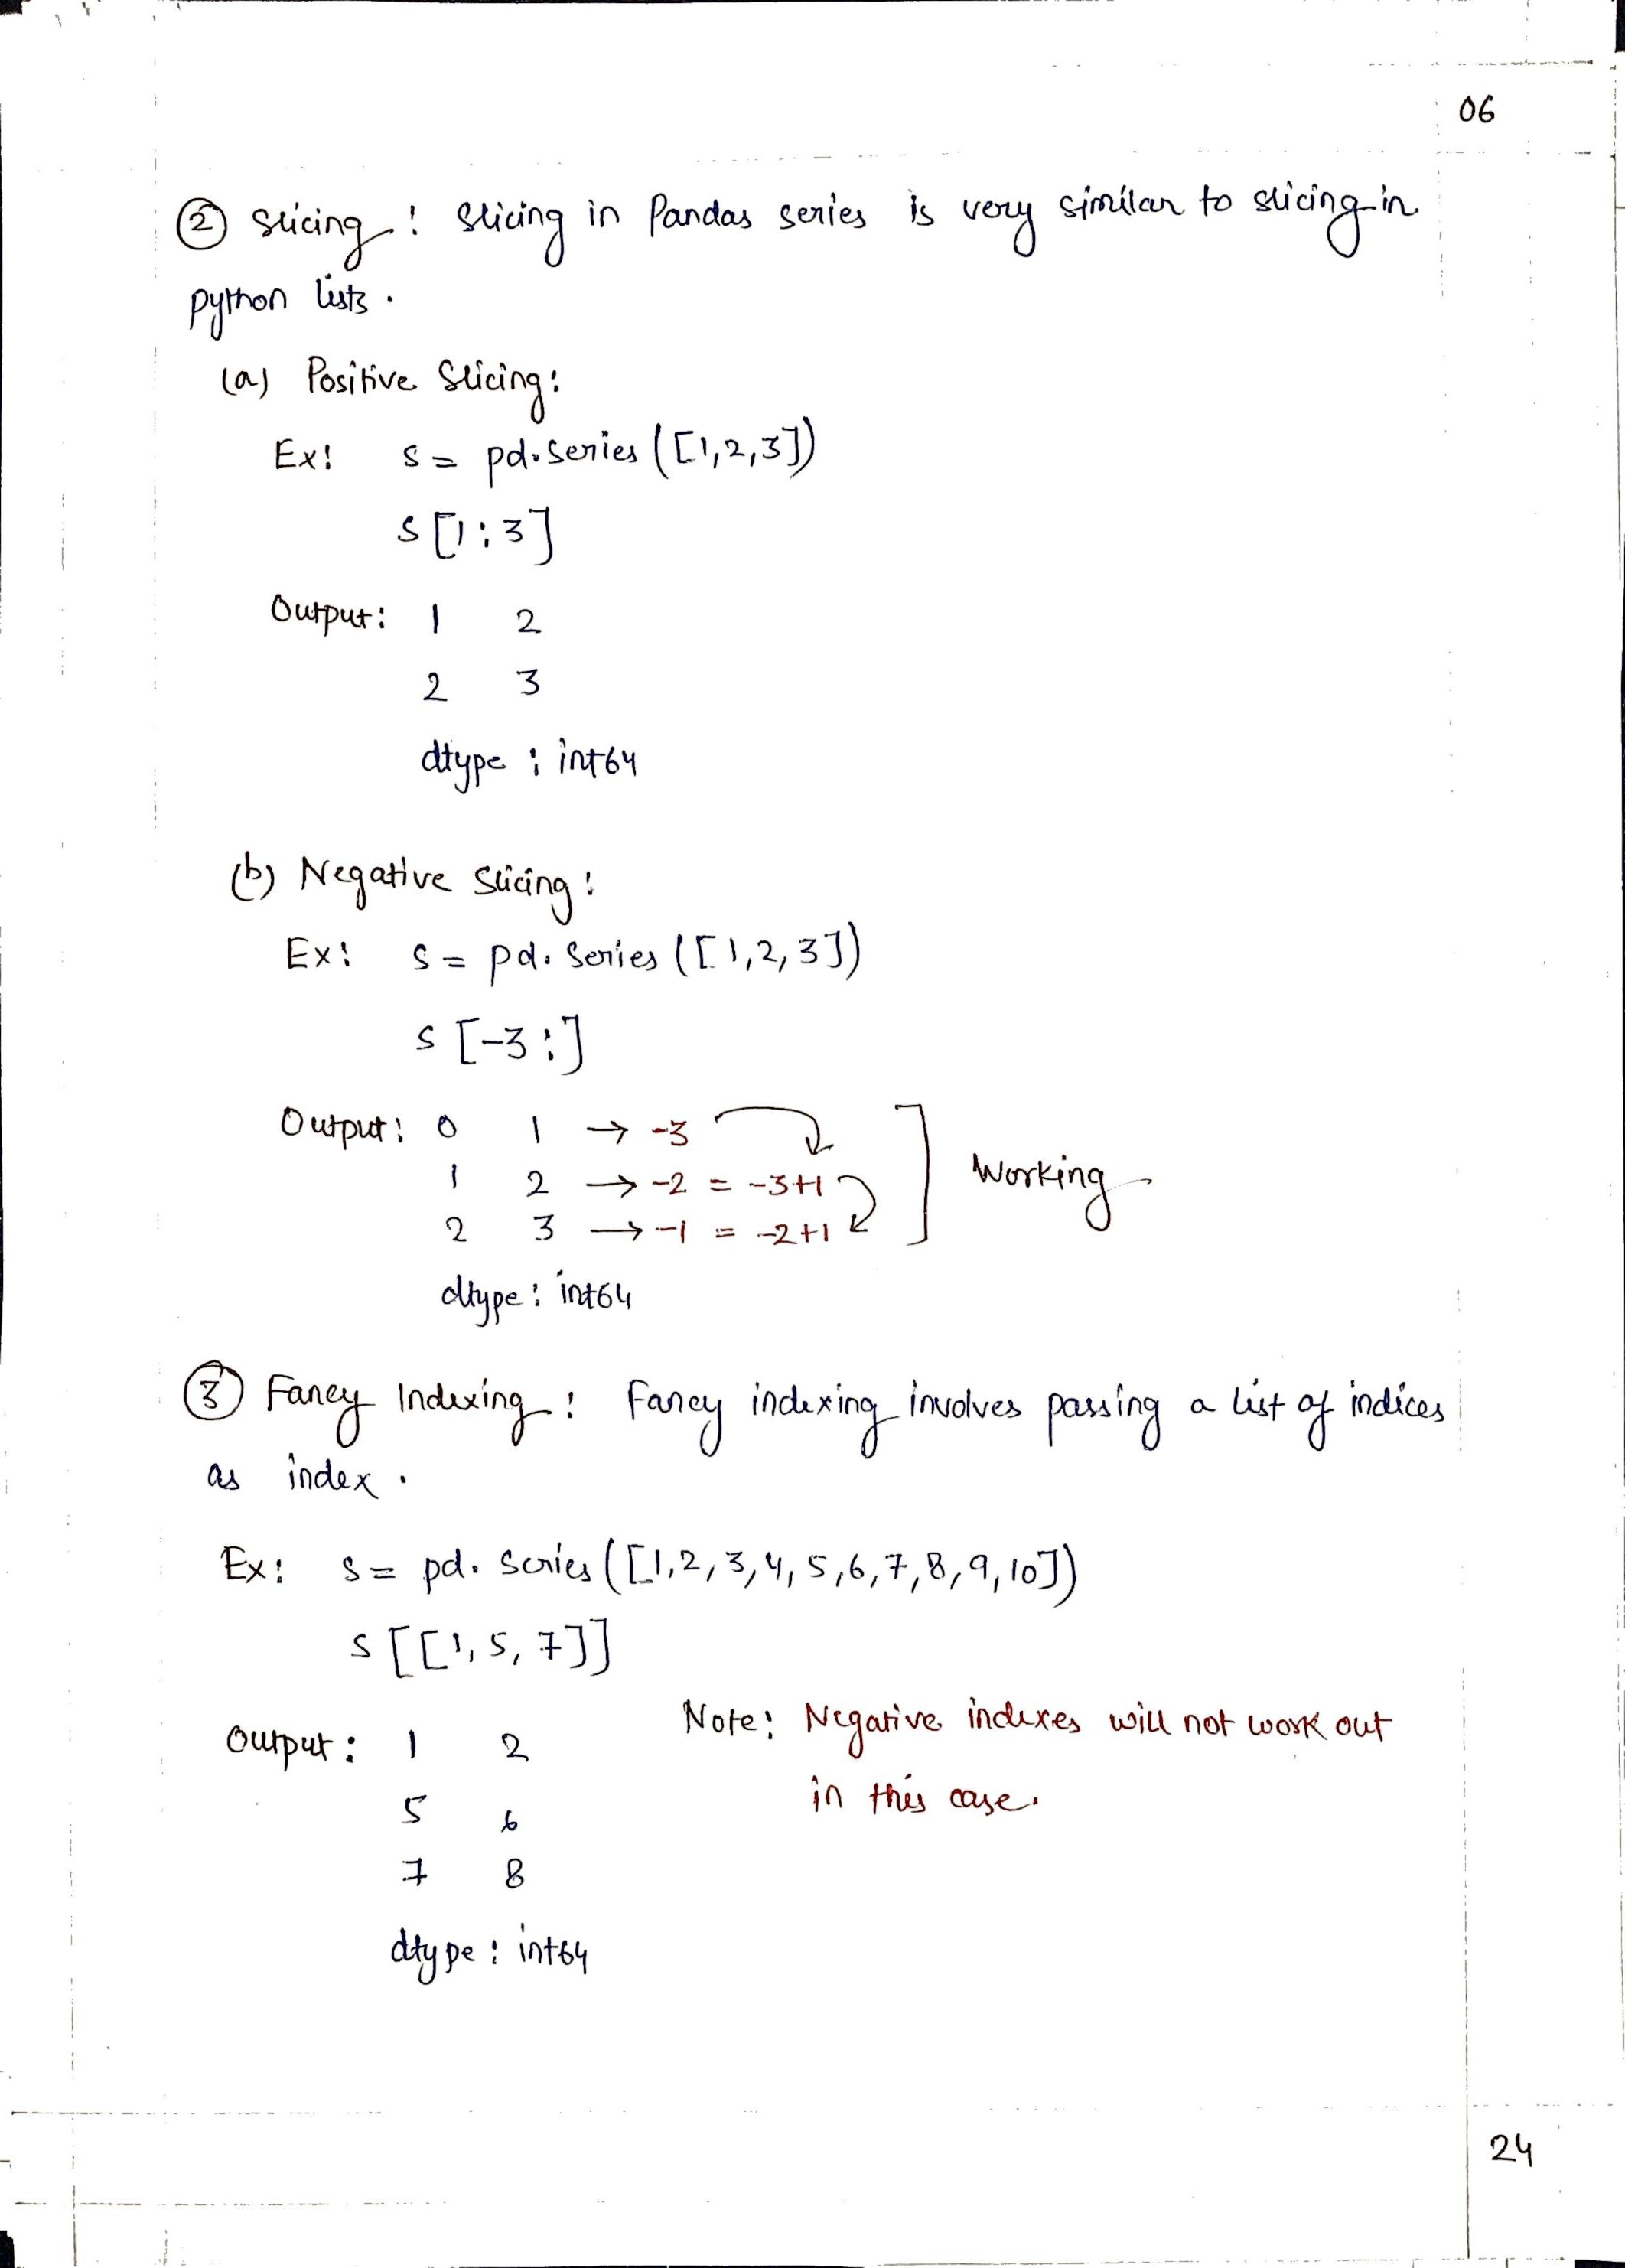 06
② Slicing: Slicing in Pandas series is very similar to slicing in
python lists.
(a) Positive Slicing:
Ex: s = pd.Series([1,2,3])
s[1:3]
Output: 1 2
2 3
dtype: int64
(b) Negative Slicing:
Ex: s = pd.Series([1,2,3])
s[-3:]
Output: 0 1 → -3
1 2 → -2 = -3+1 Working
2 3 → -1 = -2+1
dtype: int64
③ Fancy Indexing: Fancy indexing involves passing a list of indices
as index.
Ex: s = pd.Series([1,2,3,4,5,6,7,8,9,10])
s[[1,5,7]]
Note: Negative indexes will not work out
Output: 1 2
in this case.
5 6
7 8
dtype: int64
24